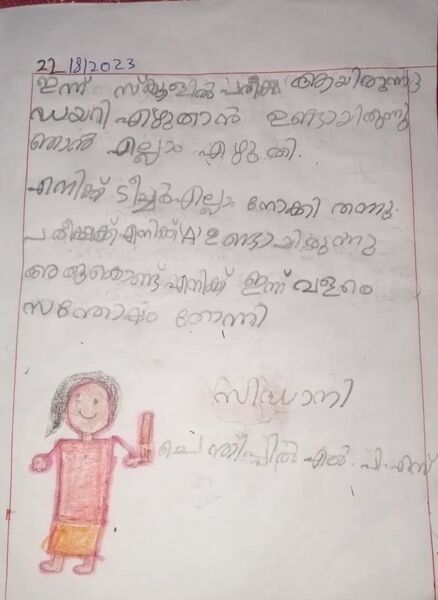 22/8/2023
ഇന്ന് സ്കൂളിൽ പരീക്ഷ ആയിരുന്നു
ഡയറി എഴുതാൻ ഉണ്ടായിരുന്നു
ഞാൻ എല്ലാം എഴുതി.
എനിക്ക് ടീച്ചർ എല്ലാം നോക്കി തന്നു.
പരീക്ഷക്ക് എനിക്ക് 'A' ഉണ്ടായിരുന്നു
അതുകൊണ്ട് എനിക്ക് ഇന്ന് വളരെ
സന്തോഷം തോന്നി
സിദ്ധാനി
എൽ.പി.എസ്